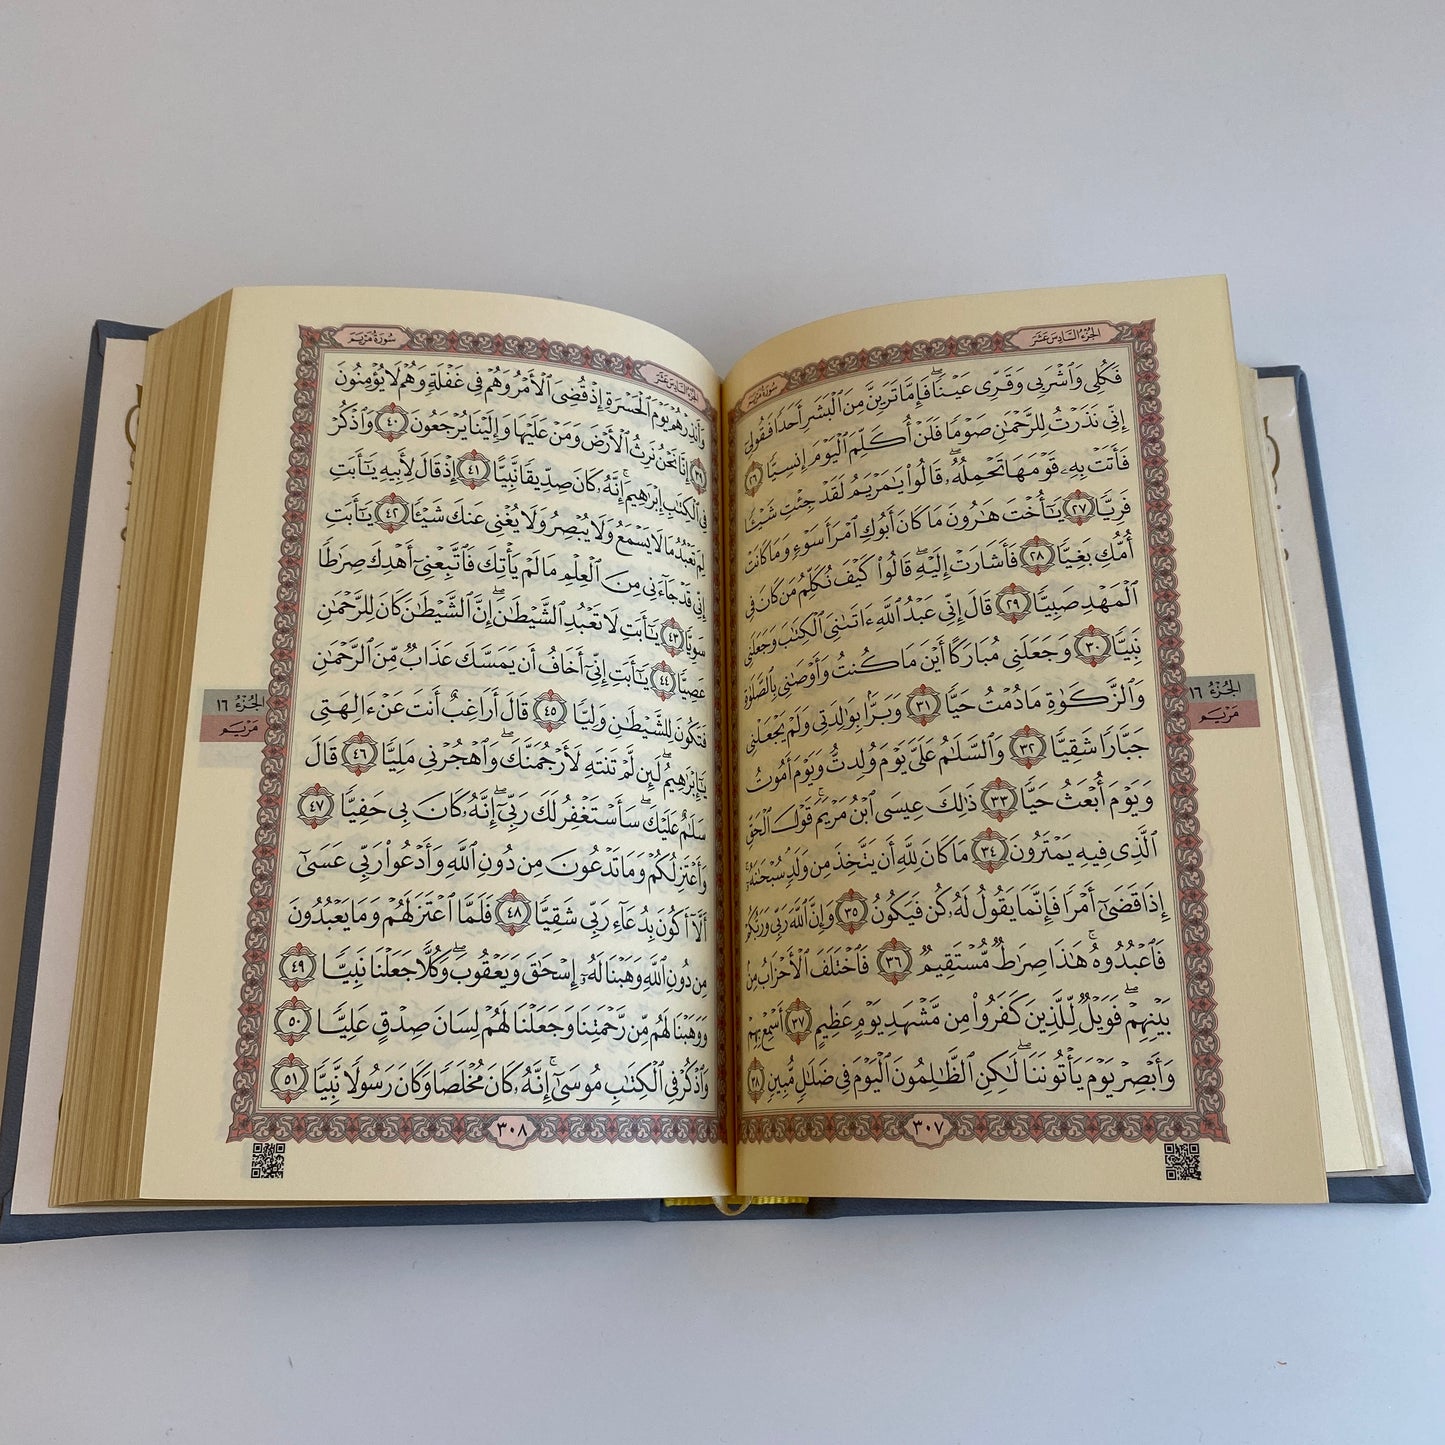 الجُزْءُ السَّادِسَ عَشَرَ
سُورَةُ مَرْيَمَ
فَكُلِي وَٱشْرَبِي وَقَرِّي عَيْنًاۖ فَإِمَّا تَرَيِنَّ مِنَ ٱلْبَشَرِ أَحَدًا فَقُولِيٓ
إِنِّي نَذَرْتُ لِلرَّحْمَٰنِ صَوْمًا فَلَنْ أُكَلِّمَ ٱلْيَوْمَ إِنسِيًّا ٢٦
فَأَتَتْ بِهِۦ قَوْمَهَا تَحْمِلُهُۥۖ قَالُوا۟ يَٰمَرْيَمُ لَقَدْ جِئْتِ شَيْـًٔا
فَرِيًّا ٢٧ يَٰٓأُخْتَ هَٰرُونَ مَا كَانَ أَبُوكِ ٱمْرَأَ سَوْءٍ وَمَا كَانَتْ
أُمُّكِ بَغِيًّا ٢٨ فَأَشَارَتْ إِلَيْهِۖ قَالُوا۟ كَيْفَ نُكَلِّمُ مَن كَانَ فِي
ٱلْمَهْدِ صَبِيًّا ٢٩ قَالَ إِنِّي عَبْدُ ٱللَّهِ ءَاتَىٰنِيَ ٱلْكِتَٰبَ وَجَعَلَنِي
نَبِيًّا ٣٠ وَجَعَلَنِي مُبَارَكًا أَيْنَ مَا كُنتُ وَأَوْصَٰنِي بِٱلصَّلَوٰةِ
وَٱلزَّكَوٰةِ مَا دُمْتُ حَيًّا ٣١ وَبَرًّۢا بِوَٰلِدَتِي وَلَمْ يَجْعَلْنِي
جَبَّارًا شَقِيًّا ٣٢ وَٱلسَّلَٰمُ عَلَيَّ يَوْمَ وُلِدتُّ وَيَوْمَ أَمُوتُ
وَيَوْمَ أُبْعَثُ حَيًّا ٣٣ ذَٰلِكَ عِيسَى ٱبْنُ مَرْيَمَۚ قَوْلَ ٱلْحَقِّ
ٱلَّذِي فِيهِ يَمْتَرُونَ ٣٤ مَا كَانَ لِلَّهِ أَن يَتَّخِذَ مِن وَلَدٍۖ سُبْحَٰنَهُۥٓۚ
إِذَا قَضَىٰٓ أَمْرًا فَإِنَّمَا يَقُولُ لَهُۥ كُن فَيَكُونُ ٣٥ وَإِنَّ ٱللَّهَ رَبِّي وَرَبُّكُمْ
فَٱعْبُدُوهُۚ هَٰذَا صِرَٰطٌ مُّسْتَقِيمٌ ٣٦ فَٱخْتَلَفَ ٱلْأَحْزَابُ مِنۢ
بَيْنِهِمْۖ فَوَيْلٌ لِّلَّذِينَ كَفَرُوا۟ مِن مَّشْهَدِ يَوْمٍ عَظِيمٍ ٣٧ أَسْمِعْ بِهِمْ
وَأَبْصِرْ يَوْمَ يَأْتُونَنَاۖ لَٰكِنِ ٱلظَّٰلِمُونَ ٱلْيَوْمَ فِي ضَلَٰلٍ مُّبِينٍ ٣٨
٣٠٧
الجُزْءُ ١٦
مَرْيَم
الجُزْءُ السَّادِسَ عَشَرَ
سُورَةُ مَرْيَمَ
وَأَنذِرْهُمْ يَوْمَ ٱلْحَسْرَةِ إِذْ قُضِيَ ٱلْأَمْرُ وَهُمْ فِي غَفْلَةٍ وَهُمْ لَا يُؤْمِنُونَ
٣٩ إِنَّا نَحْنُ نَرِثُ ٱلْأَرْضَ وَمَنْ عَلَيْهَا وَإِلَيْنَا يُرْجَعُونَ ٤٠ وَٱذْكُرْ
فِي ٱلْكِتَٰبِ إِبْرَٰهِيمَۚ إِنَّهُۥ كَانَ صِدِّيقًا نَّبِيًّا ٤١ إِذْ قَالَ لِأَبِيهِ يَٰٓأَبَتِ
لِمَ تَعْبُدُ مَا لَا يَسْمَعُ وَلَا يُبْصِرُ وَلَا يُغْنِي عَنكَ شَيْـًٔا ٤٢ يَٰٓأَبَتِ
إِنِّي قَدْ جَآءَنِي مِنَ ٱلْعِلْمِ مَا لَمْ يَأْتِكَ فَٱتَّبِعْنِيٓ أَهْدِكَ صِرَٰطًا
سَوِيًّا ٤٣ يَٰٓأَبَتِ لَا تَعْبُدِ ٱلشَّيْطَٰنَۖ إِنَّ ٱلشَّيْطَٰنَ كَانَ لِلرَّحْمَٰنِ
عَصِيًّا ٤٤ يَٰٓأَبَتِ إِنِّيٓ أَخَافُ أَن يَمَسَّكَ عَذَابٌ مِّنَ ٱلرَّحْمَٰنِ
فَتَكُونَ لِلشَّيْطَٰنِ وَلِيًّا ٤٥ قَالَ أَرَاغِبٌ أَنتَ عَنْ ءَالِهَتِي
يَٰٓإِبْرَٰهِيمُۖ لَئِن لَّمْ تَنتَهِ لَأَرْجُمَنَّكَۖ وَٱهْجُرْنِي مَلِيًّا ٤٦ قَالَ
سَلَٰمٌ عَلَيْكَۖ سَأَسْتَغْفِرُ لَكَ رَبِّيٓۖ إِنَّهُۥ كَانَ بِي حَفِيًّا ٤٧
وَأَعْتَزِلُكُمْ وَمَا تَدْعُونَ مِن دُونِ ٱللَّهِ وَأَدْعُوا۟ رَبِّي عَسَىٰٓ
أَلَّآ أَكُونَ بِدُعَآءِ رَبِّي شَقِيًّا ٤٨ فَلَمَّا ٱعْتَزَلَهُمْ وَمَا يَعْبُدُونَ
مِن دُونِ ٱللَّهِ وَهَبْنَا لَهُۥٓ إِسْحَٰقَ وَيَعْقُوبَۖ وَكُلًّا جَعَلْنَا نَبِيًّا ٤٩
وَوَهَبْنَا لَهُم مِّن رَّحْمَتِنَا وَجَعَلْنَا لَهُمْ لِسَانَ صِدْقٍ عَلِيًّا ٥٠
وَٱذْكُرْ فِي ٱلْكِتَٰبِ مُوسَىٰٓۚ إِنَّهُۥ كَانَ مُخْلَصًا وَكَانَ رَسُولًا نَّبِيًّا ٥١
٣٠٨
الجُزْءُ ١٦
مَرْيَم